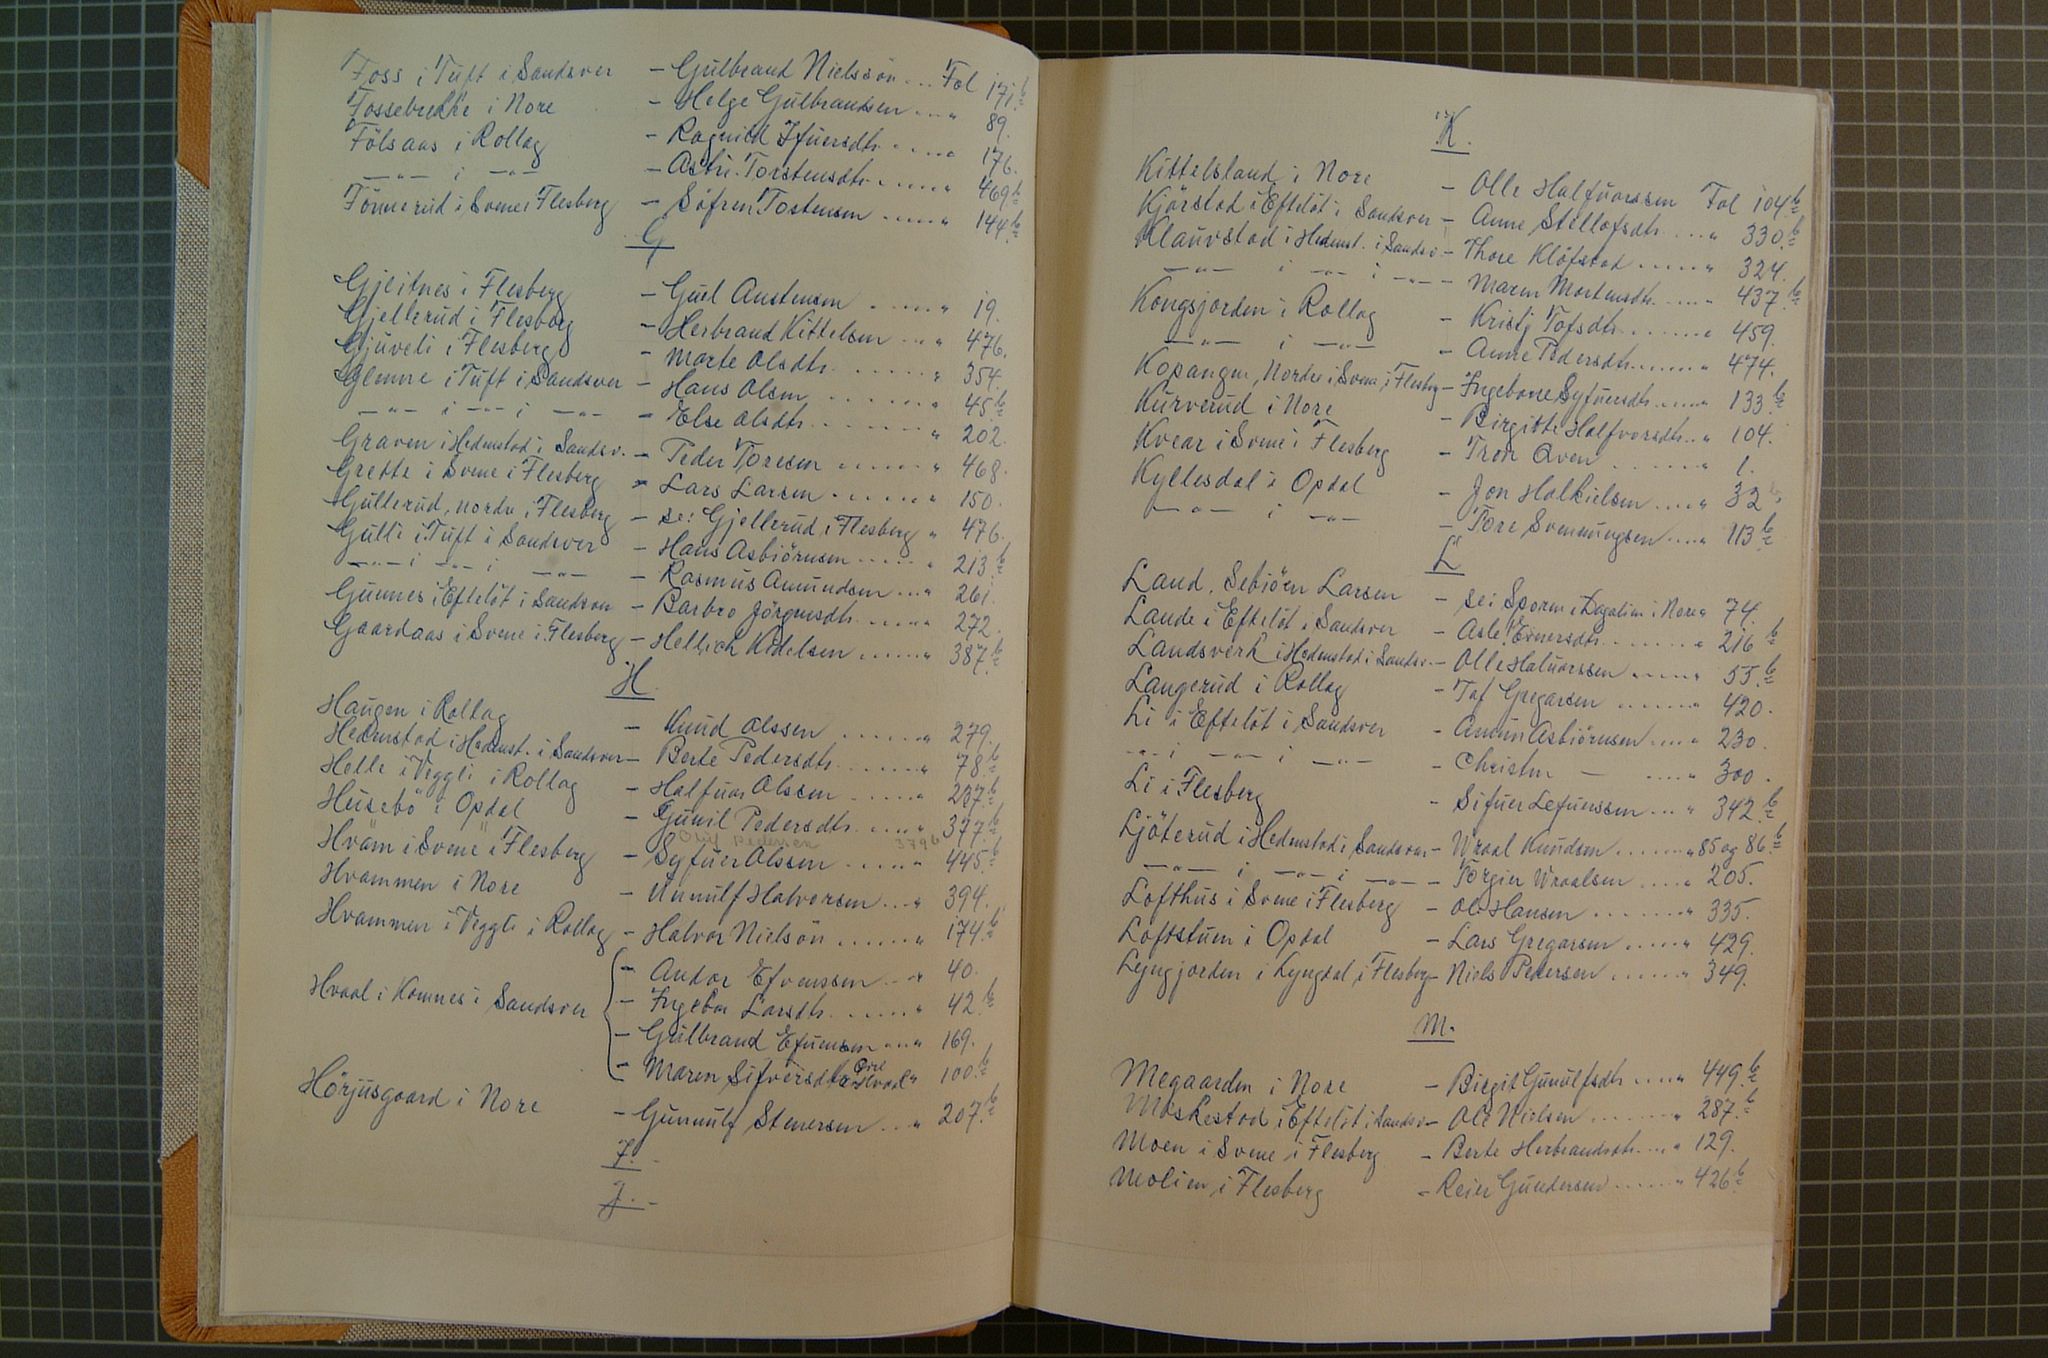 Foss i Tuft i Sandsver — Gulbrand Nielssön ... Fol 171.b
Fossebrekke i Nore — Helge Gulbrandsen ... " 89.
Fölsaas i Rollag — Ragnild Ifuersdtr ..... " 176.
— " — i — " — — Astri Torstensdtr ..... " 469 b
Fönnerud i Svene i Flesberg — Söfren Tostensen ..... " 144.b
G
Gjeitnes i Flesberg — Guel Austensen ..... " 19.
Gjellerud i Flesberg — Herbrand Kittelsen ... " 476.
Gjuveli i Flesberg — Marte Olsdtr ...... " 354.
Glenne i Tuft i Sandsver — Hans Olsen ....... " 45.b
— " — i — " — i — " — — Else Olsdtr ....... " 202.
Graven i Hedenstad i Sandsv. — Peder Toresen ...... " 468.
Grette i Svene i Flesberg — Lars Larsen ...... " 150.
Gullerud, nordre i Flesberg — se: Gjellerud i Flesberg " 476.
Gulli i Tuft i Sandsver — Hans Asbiörnsen ..... " 213 b
— " — i — " — i — " — — Rasmus Amundsen ... " 261.
Gunnes i Eftelöt i Sandsver — Barbro Jörgensdtr ..... " 272.
Gaardaas i Svene i Flesberg — Hellrich Kidelsen ..... " 387.b
H.
Haugen i Rollag — Knud Olssen ....... " 279.
Hedenstad i Hedenst. i Sandsver — Berte Pedersdtr ....... " 78.b
Helle i Veggli i Rollag — Halfuor Olssen ...... " 237.b
Husebö i Opdal — Gunil Pedersdtr ..... " 377.b
Oluf Pedersen 379 b
Hvam i Svene i Flesberg — Syfuer Olssen ..... " 445.b
Hvammen i Nore — Unnulf Halvorsen ... " 394.
Hvammen i Veggli i Rollag — Halvor Nielsön ...... " 174.b
Hvaal i Komnes i Sandsver
— Andor Efvenssen .. " 40.
— Ingebor Larsdtr ....... " 42.b
— Gulbrand Efuensen ... " 169.
— Maren Sifversdtr Hvaal " 100.b
Hörjusgaard i Nore — Gunnulf Stenersen ... " 207.b
I.
J.
K.
Kittelsland i Nore — Olle Halfuorssen Fol 104 b
Kjörstad i Eftelöt i Sandsver — Anne Stellofsdtr .... " 330.b
Klauvstad i Hedenst. i Sandsv. — Thore Klöfstad ...... " 324.
— " — i — " — i — " — — Maren Mortensdtr ..... " 437.b
Kongsjorden i Rollag — Kristj Tofsdtr ....... " 459.
— " — i — " — — Anne Pedersdtr ...... " 474.
Kopangen, Nordre i Svene i Flesberg — Ingeborre Syfuersdtr ..... " 133.b
Kurverud i Nore — Birgitte Halfvorsdtr .. " 104.
Kvear i Svene i Flesberg — Tron Qven ....... " 1.
Kyllesdal i Opdal — Jon Halkielsen .... " 32
— " — i — " — — Tore Svennungsen .... " 113 b
L
Land, Sebiörn Larsen — se: Sporen i Dagalien i Nore " 74.
Lande i Eftelöt i Sandsver — Asle Einersdtr ....... " 216 b
Landsverk i Hedenstad i Sandsv. — Olle Haluorssen ..... " 55.b
Langerud i Rollag — Tof Gregarsen ...... " 420.
Li i Eftelöt i Sandsver — Amun Asbiörnsen .... " 230.
— " — i — " — i — " — — Christen — .... " 300.
Li i Flesberg — Sifuer Lefuerssen ... " 342.b
Ljöterud i Hedenstad i Sandsver — Wraal Knudsen ....... " 85 og 86.b
— " — i — " — i — " — — Torgier Wraalsen .... " 205.
Lofthus i Svene i Flesberg — Ole Hansen ........ " 335.
Loftstuen i Opdal — Lars Gregarsen ..... " 429.
Lyngjorden i Lyngdal i Flesberg — Niels Pedersen ...... " 349.
M.
Megaarden i Nore — Birgit Gunulfsdtr .... " 449.b
Moskestad i Eftelöt i Sandsv — Ole Nielsen ....... " 287.b
Moen i Svene i Flesberg — Berte Herbrandsdtr ... " 129.
Molien i Flesberg — Reier Gundersen ...... " 426 b